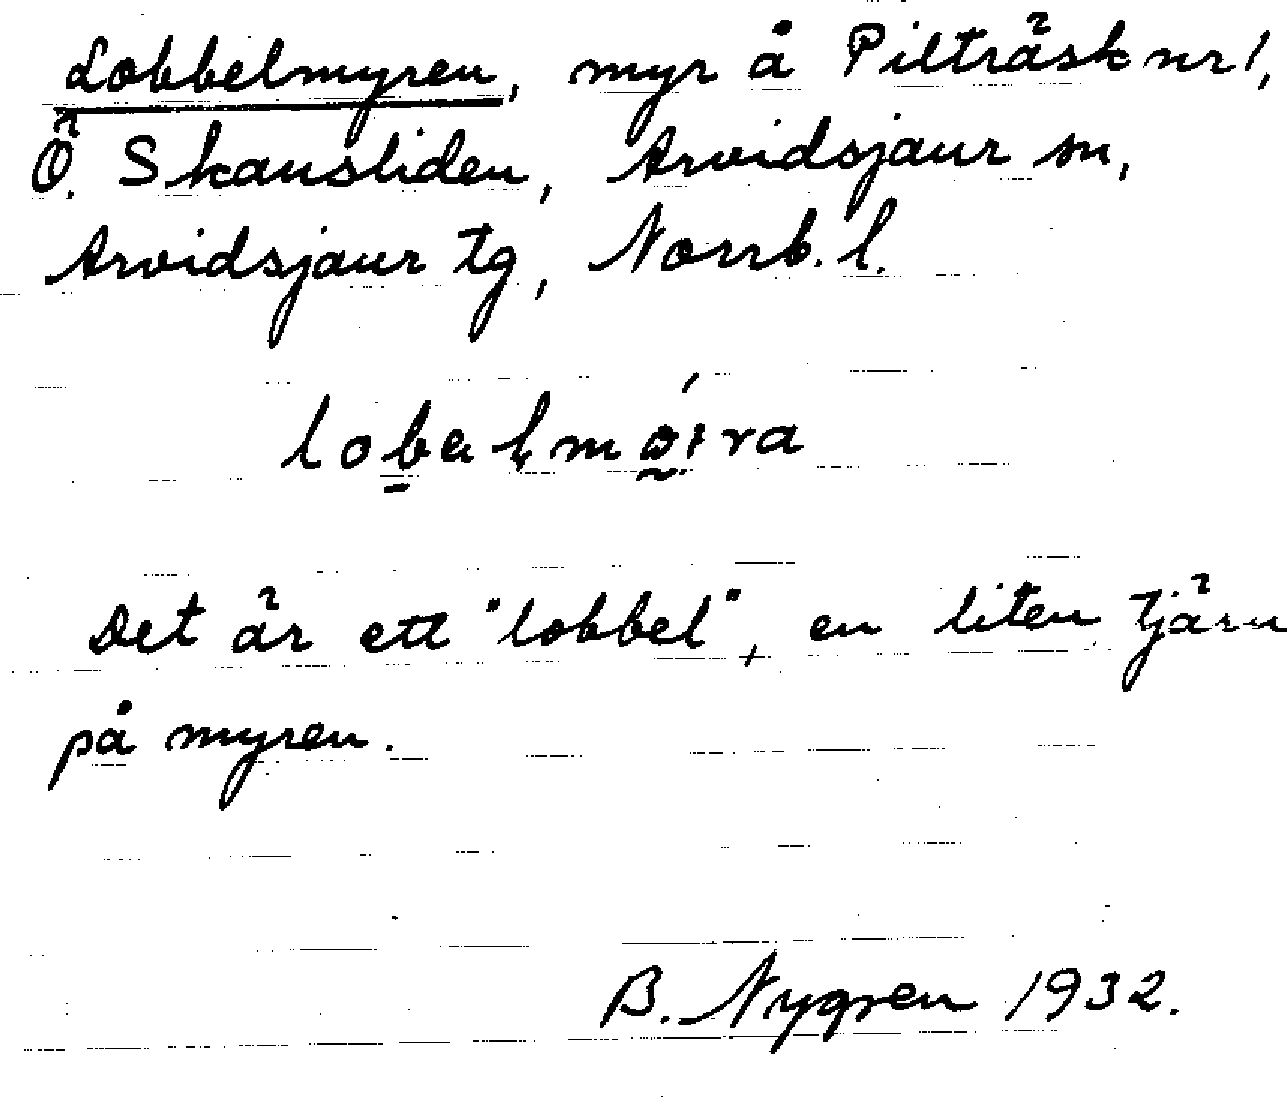 Lobbelmyren, myr å Pilträsk nr 1,
Ö. Skansliden, Arvidsjaur sn,
Arvidsjaur tg, Norrb. l.
Det är ett "lobbel", en liten tjärn
på myren.
B. Nygren 1932.